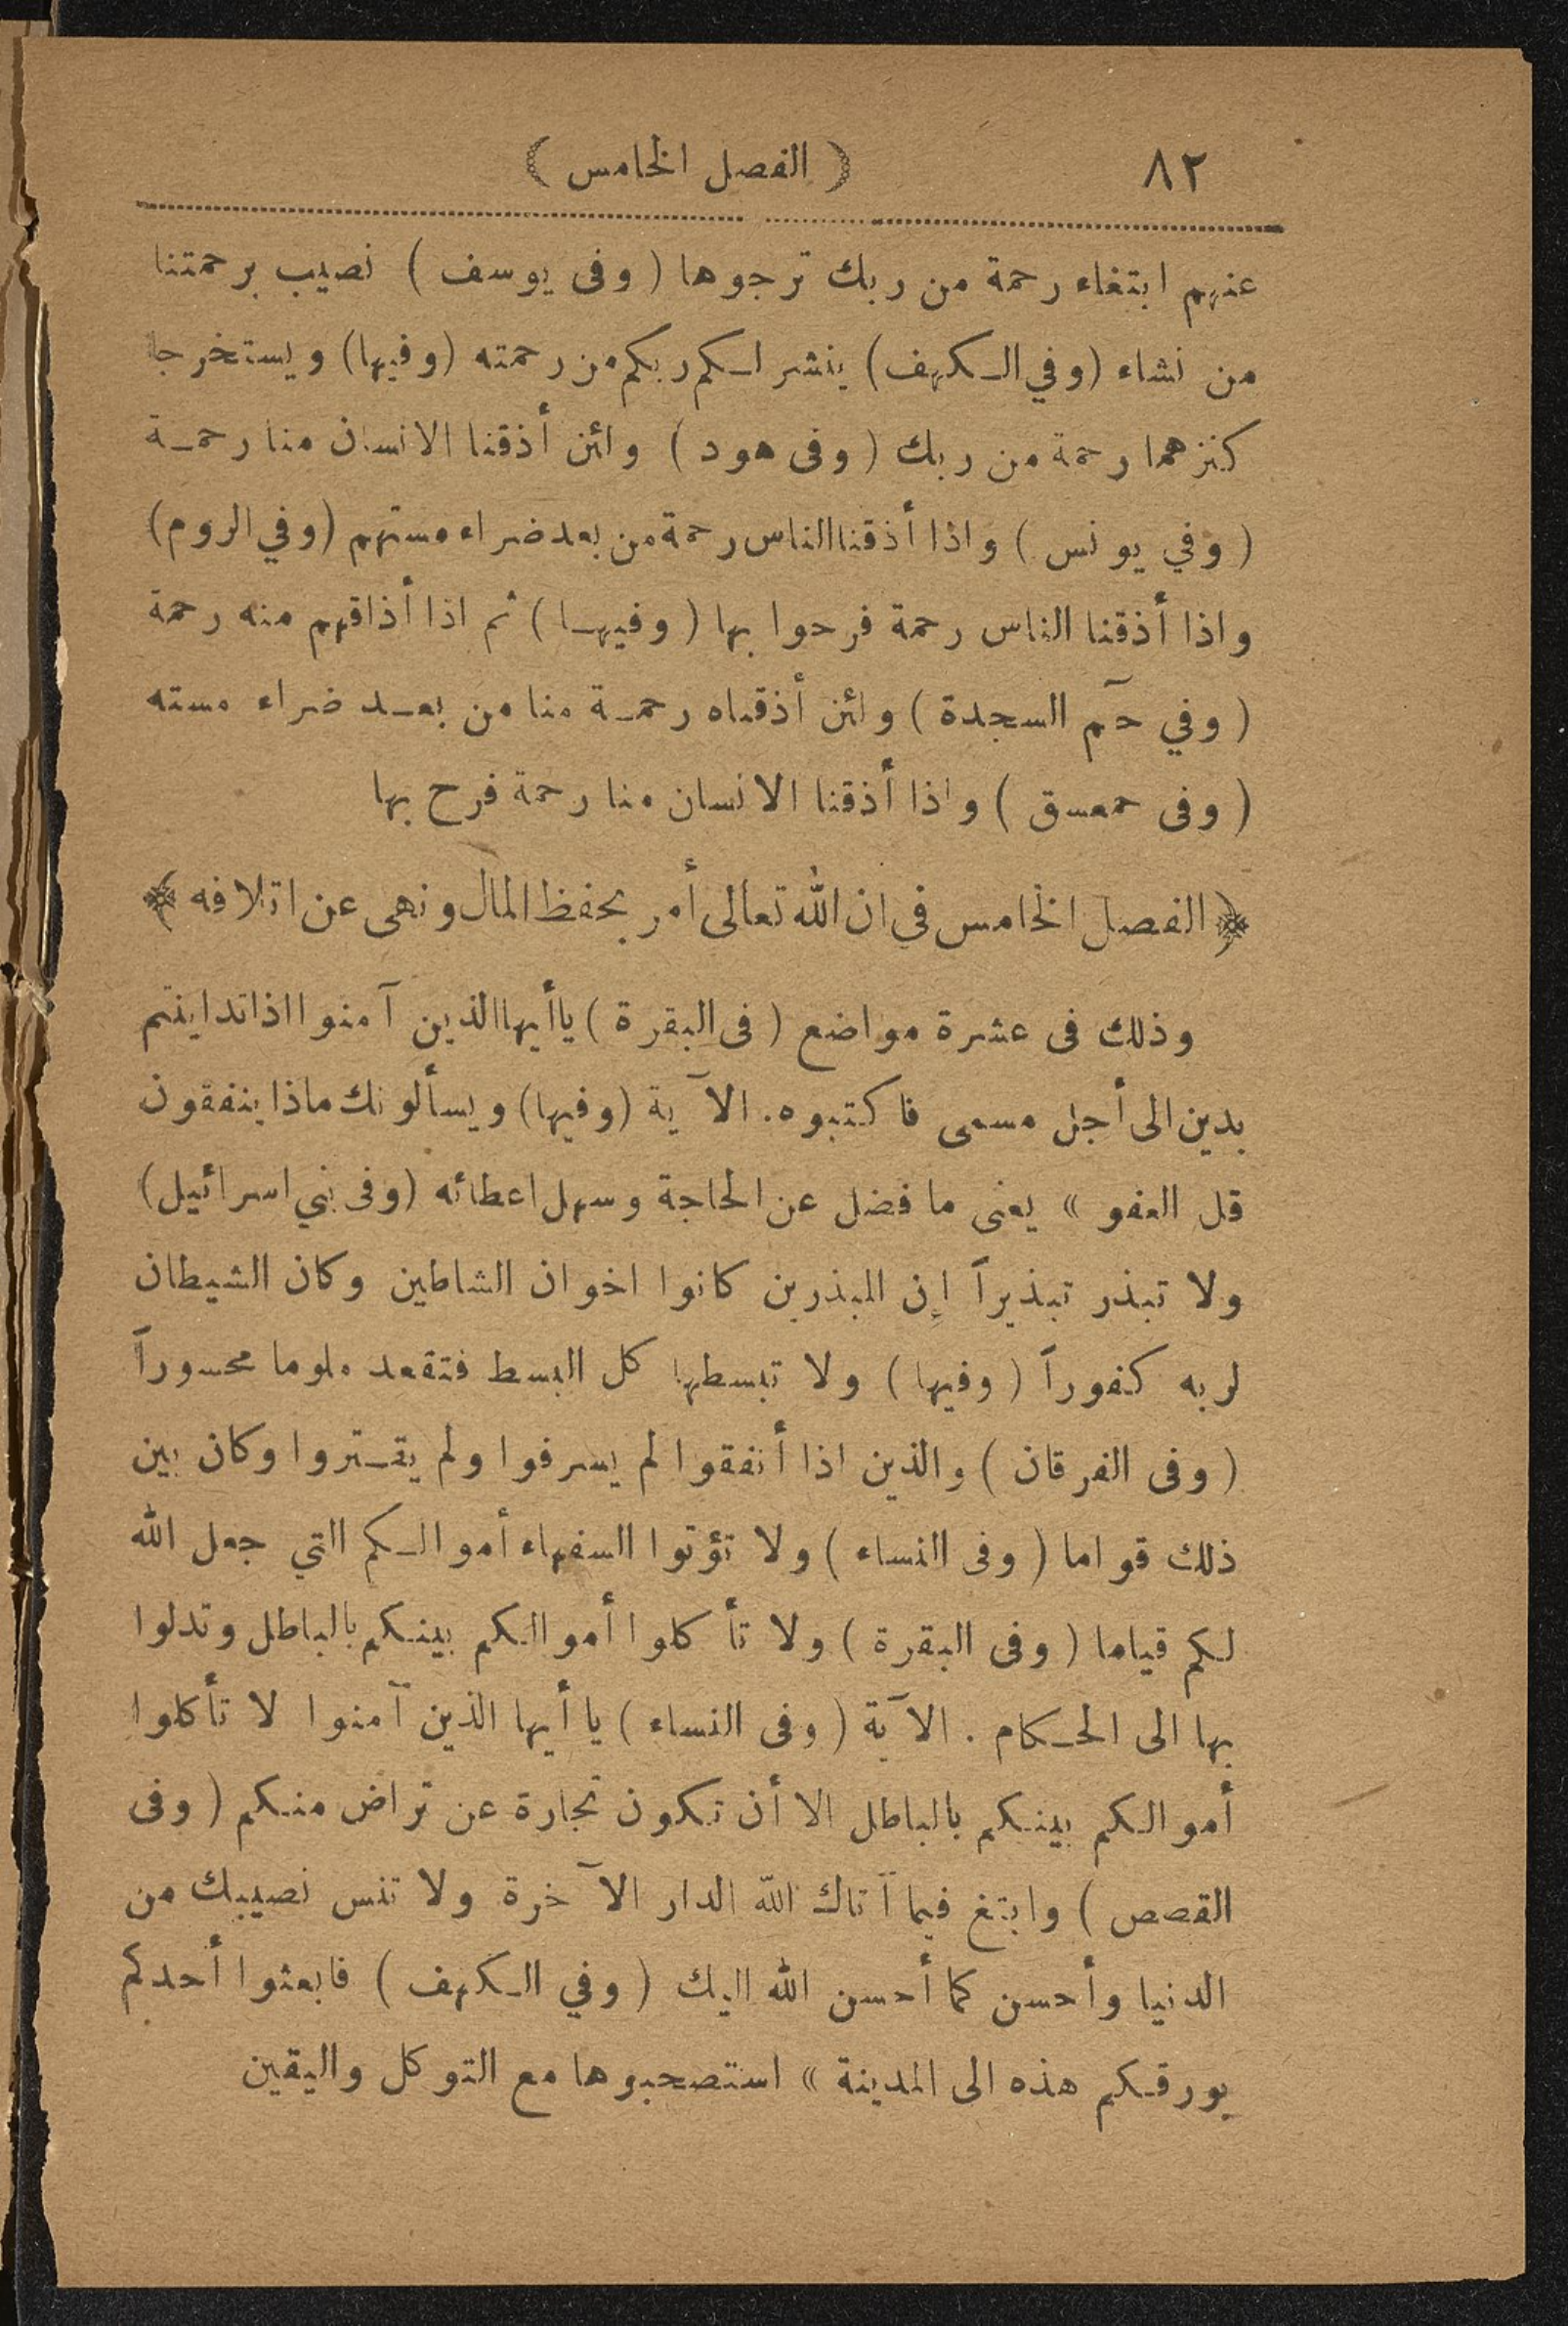 ٨٢ ( الفصل الخامس )
عنهم ابتغاء رحمة من ربك ترجوها ( وفى يوسف ) نصيب برحمتنا
من نشاء (وفي الكهف) ينشر لكم ربكم من رحمته (وفيها) ويستخرجا
كنزهما رحمة من ربك ( وفى هود ) ولئن أذقنا الانسان منا رحمة
( وفي يونس ) واذا أذقنا الناس رحمة من بعد ضراء مستهم (وفي الروم)
واذا أذقنا الناس رحمة فرحوا بها ( وفيها ) ثم اذا أذاقهم منه رحمة
( وفي حآم السجدة ) ولئن أذقناه رحمة منا من بعد ضراء مسته
( وفى حمعسق ) واذا أذقنا الانسان منا رحمة فرح بها
﴿ الفصل الخامس في ان الله تعالى أمر بحفظ المال ونهى عن اتلافه ﴾
وذلك فى عشرة مواضع ( فى البقرة ) ياأيها الذين آمنوا اذا تداينتم
بدين الى أجل مسمى فاكتبوه. الآية (وفيها) ويسألونك ماذا ينفقون
قل العفو » يعنى ما فضل عن الحاجة وسهل اعطائه (وفى بني اسرائيل)
ولا تبذر تبذيراً إن المبذرين كانوا اخوان الشاطين وكان الشيطان
لربه كفوراً ( وفيها ) ولا تبسطها كل البسط فتقعد ملوما محسوراً
( وفى الفرقان ) والذين اذا أنفقوا لم يسرفوا ولم يقتروا وكان بين
ذلك قواما ( وفى النساء ) ولا تؤتوا السفهاء أموالكم التي جعل الله
لكم قياما ( وفى البقرة ) ولا تأكلوا أموالكم بينكم بالباطل وتدلوا
بها الى الحكام . الآية ( وفى النساء ) يا أيها الذين آمنوا لا تأكلوا
أموالكم بينكم بالباطل الا أن تكون تجارة عن تراض منكم ( وفى
القصص ) وابتغ فيما آتاك الله الدار الآخرة ولا تنس نصيبك من
الدنيا وأحسن كما أحسن الله اليك ( وفي الكهف ) فابعثوا أحدكم
بورقكم هذه الى المدينة » استصحبوها مع التوكل واليقين